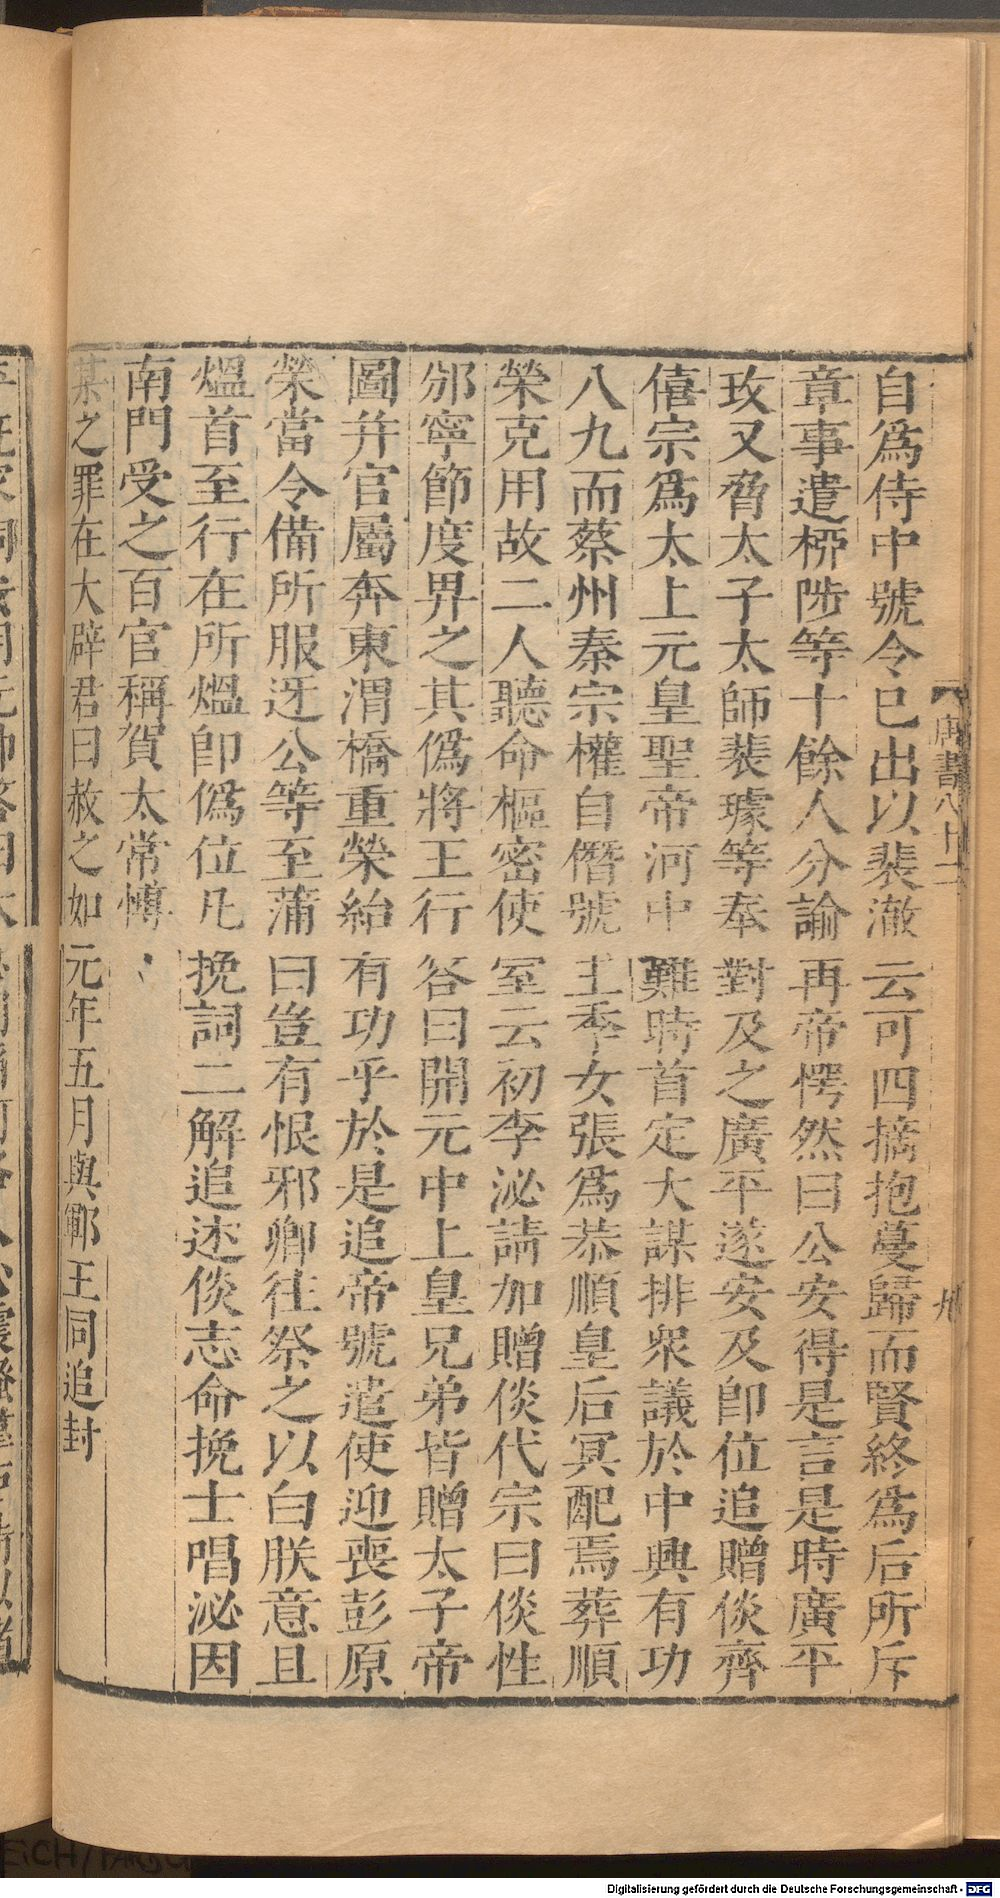 唐書八十二 九
自爲侍中號令已出以裴澈云可四摘抱蔓歸而賢終爲后所斥
章事遣栁陟等十餘人分諭再帝愕然曰公安得是言是時廣平
攻又脅太子太師裴璩等奉對及之廣平遂安及卽位追贈倓齊
僖宗爲太上元皇聖帝河中難時首定大謀排衆議於中興有功
八九而蔡州秦宗權自僭號王季女張爲恭順皇后冥配焉葬順
榮克用故二人聽命樞密使室云初李泌請加贈倓代宗曰倓性
邠寧節度畀之其僞將王行答曰開元中上皇兄弟皆贈太子帝
圖并官屬奔東渭橋重榮紿有功乎於是追帝號遣使迎喪彭原
榮當令備所服迓公等至蒲曰豈有恨邪卿往祭之以白朕意且
熅首至行在所熅卽僞位凡挽詞二解追述倓志命挽士唱泌因
南門受之百官稱賀太常慱
某之罪在大辟君曰赦之如元年五月與鄆王同追封
Digitalisierung gefördert durch die Deutsche Forschungsgemeinschaft - DFG